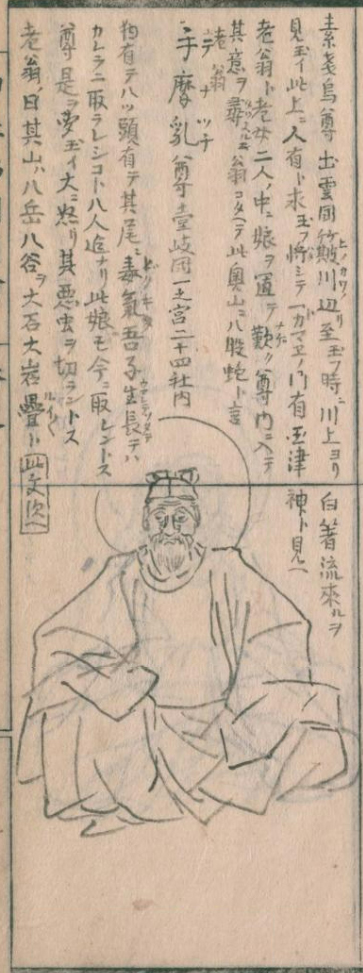 素戔烏尊出雲国簸川辺ニ至玉フ時ニ川上ヨリ 白箸流來ルヲ
見玉イ此上ニ人有ト求玉フ 有 国津 神ト見ヘ
老翁ト老女二人ノ中ニ娘ヲ置テ歎ク尊内ニ入テ
其意ヲ尋 翁コタヘテ此奧山ニ八股蛇ト言
老翁
テナツチ
手摩乳尊 壹岐国一之宮二十四社内
狛有テハツ頭有テ其尾ニ毒氣吾子生長テハ
カレラニ取ラレシコト八人迠ナリ此娘モ今ニ取レントス
尊是ヲ 玉イ大ニ怒リ其悪虫ヲ切ラントス
老翁ノ曰其山ハ八岳八谷ヲ大石大岩疊ト 此文次ヘ